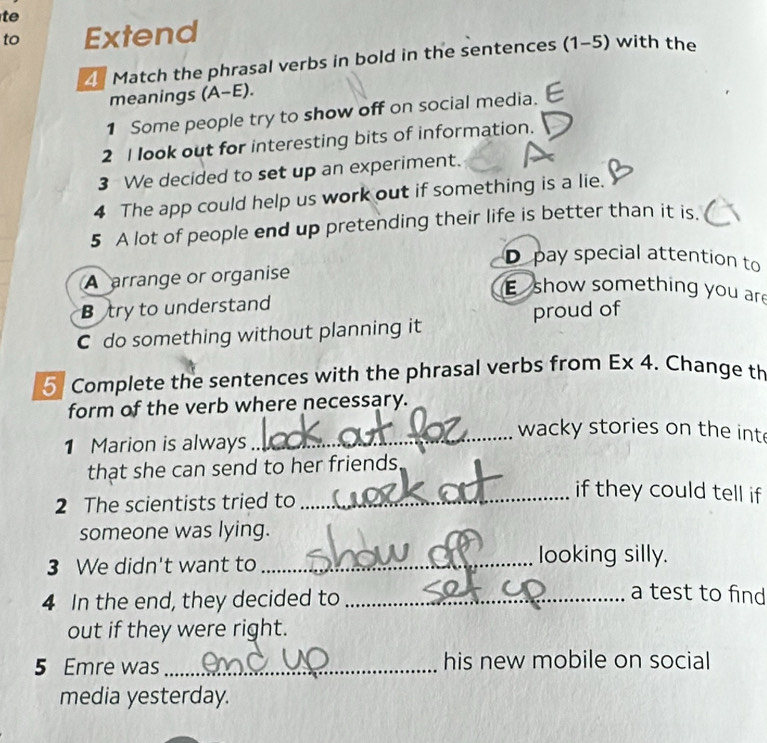 te
to
Extend
4 Match the phrasal verbs in bold in the sentences (1–5) with the
meanings (A–E).
1 Some people try to show off on social media. E
2 I look out for interesting bits of information. D
3 We decided to set up an experiment. A
4 The app could help us work out if something is a lie. B
5 A lot of people end up pretending their life is better than it is. C
A arrange or organise
B try to understand
C do something without planning it
D pay special attention to
E show something you are
proud of
5 Complete the sentences with the phrasal verbs from Ex 4. Change th
form of the verb where necessary.
1 Marion is always look out for wacky stories on the inte
that she can send to her friends.
2 The scientists tried to work out if they could tell if
someone was lying.
3 We didn't want to show off looking silly.
4 In the end, they decided to set up a test to find
out if they were right.
5 Emre was end up his new mobile on social
media yesterday.